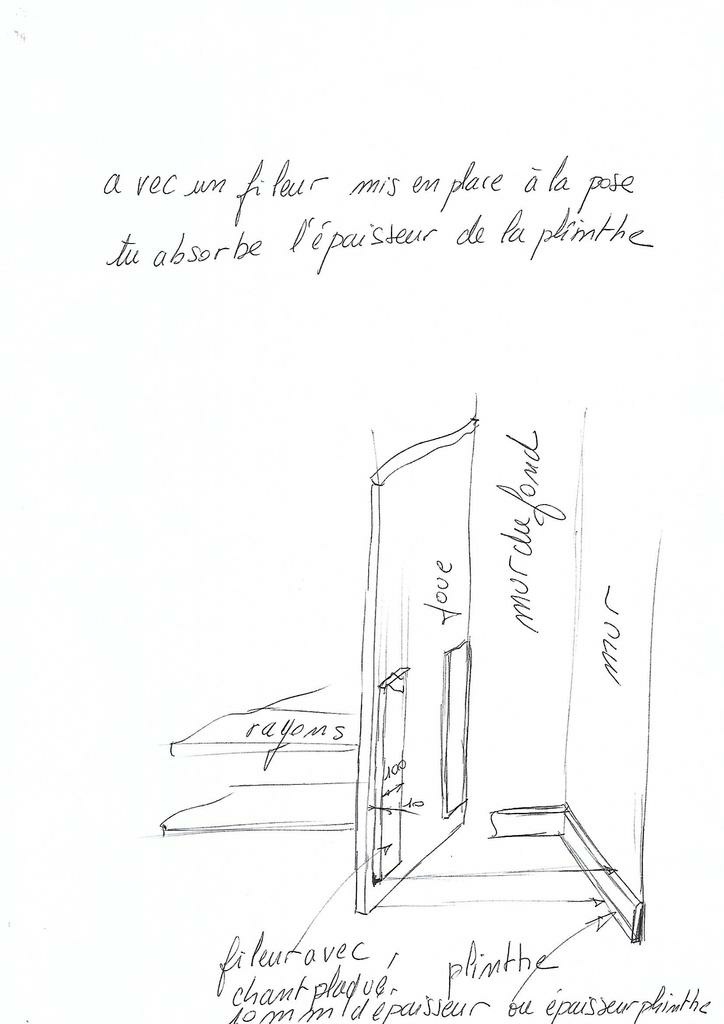 avec un fileur mis en place à la pose
tu absorbe l'épaisseur de la plinthe
mur du fond
joue
mur
rayons
100
10
fileur avec
chant plaqué
plinthe
10 mm d'épaisseur ou épaisseur plinthe